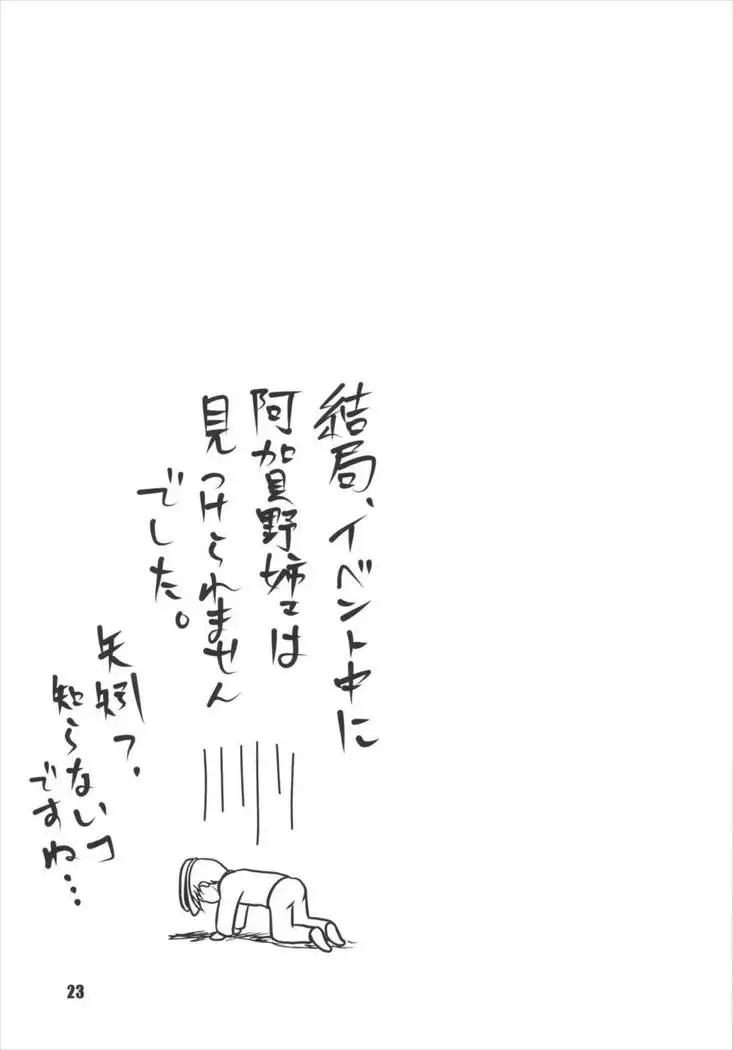 結局、イベント中に
阿加貝野姉ェは
見つけられません
でした。
矢矧？。
知らないコ
ですね…
23